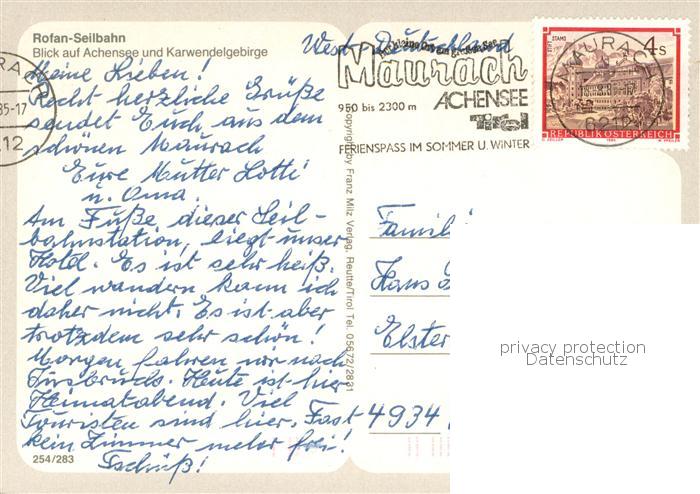 Rofan-Seilbahn
Blick auf Achensee und Karwendelgebirge
West-Deutschland
Meine Lieben!
Recht herzliche Grüße
sendet Euch aus dem
schönen Maurach
Eure Mutter Lotti
u. Oma.
Am Fuße dieser Seil-
bahnstation, liegt unser
Hotel. Es ist sehr heiß.
Viel wandern kann ich
daher nicht. Es ist aber
trotzdem sehr schön!
Morgen fahren wir nach
Insbruck. Heute ist hier
Heimatabend. Viel
Touristen sind hier. Fast
kein Zimmer mehr frei!
Tschüß!
254/283
Copyright by Franz Milz Verlag, Reutte/Tirol Tel. 05672/2831
Maurach
ACHENSEE
950 bis 2300 m
Tirol
FERIENSPASS IM SOMMER U. WINTER
85-17
212
STIFT STAMS
4 S
REPUBLIK ÖSTERREICH
MAURACH
6212
Famili
Hans
Elster
4934
privacy protection
Datenschutz